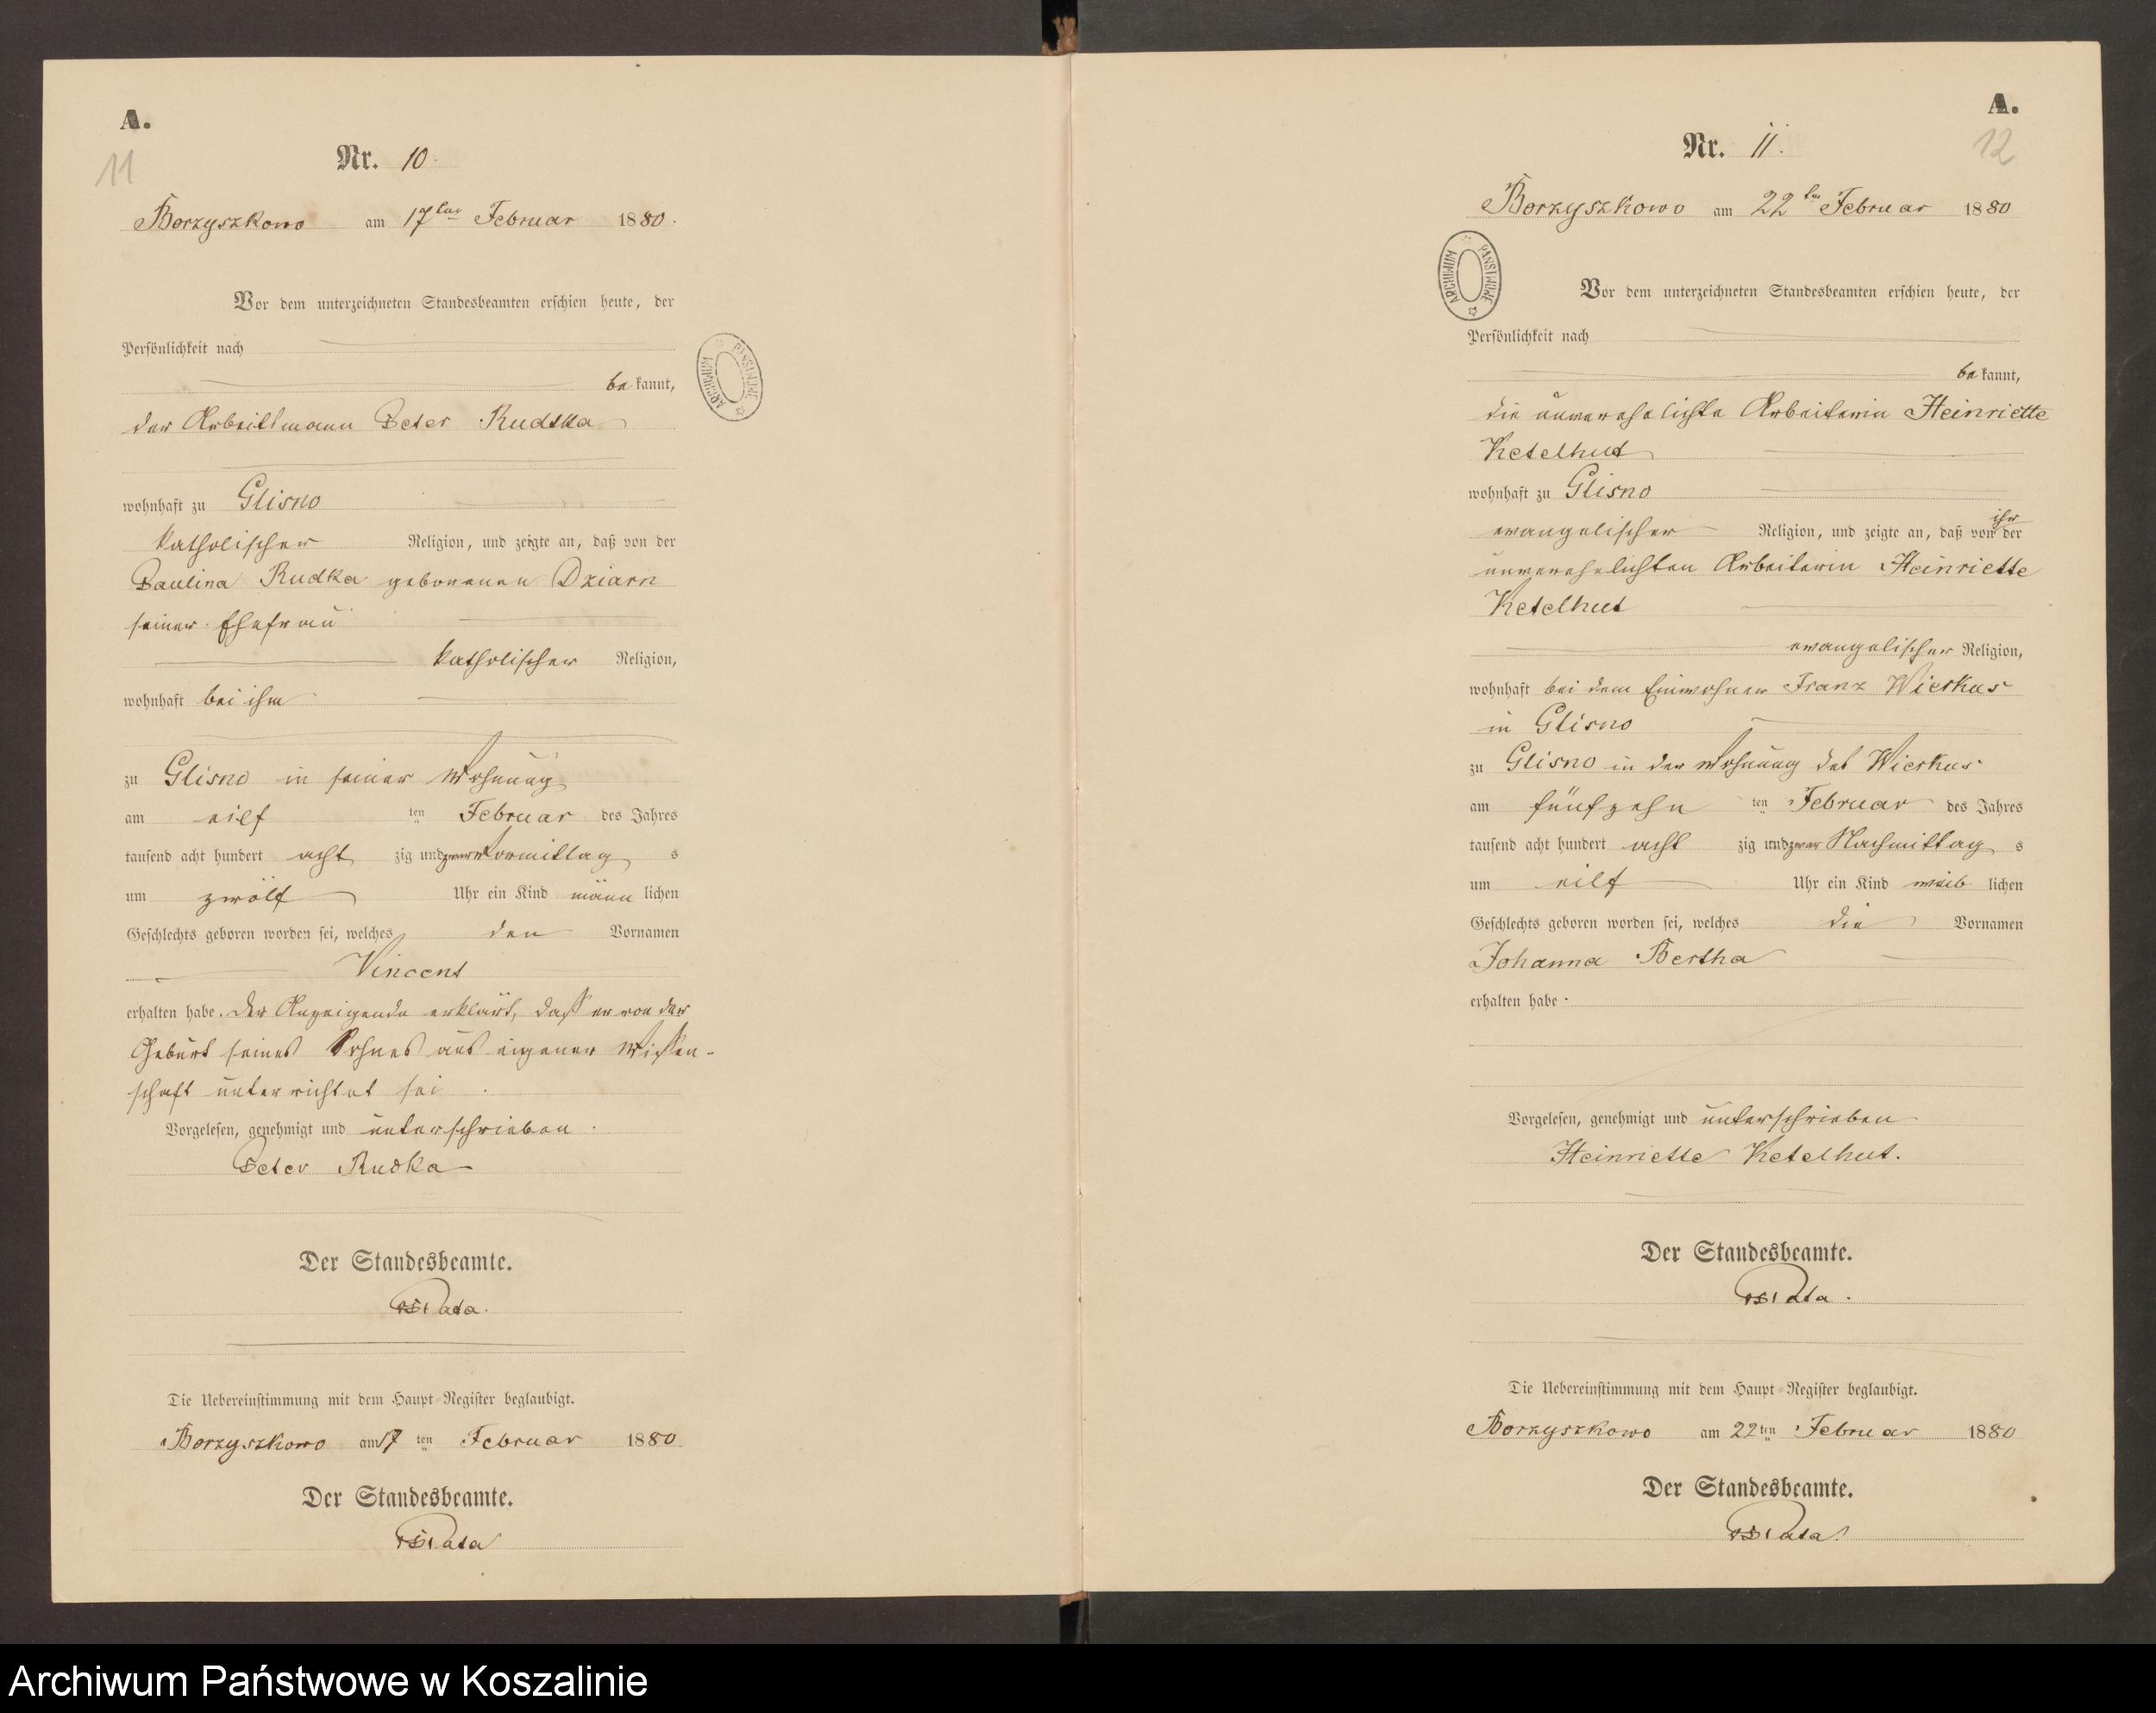 A.
11
Nr. 10.
Borzyszkowo am 17ten Februar 1880.
Vor dem unterzeichneten Standesbeamten erschien heute, der
Persönlichkeit nach
be kannt,
der Arbeitsmann Peter Rudka
wohnhaft zu Glisno
katholischer Religion, und zeigte an, daß von der
Paulina Rudka geborenen Dziarn
seiner Ehefrau
katholischer Religion,
wohnhaft bei ihm
zu Glisno in seiner Wohnung
am eilf ten Februar des Jahres
tausend acht hundert acht zig und zwar Vormittag s
um zwölf Uhr ein Kind männ lichen
Geschlechts geboren worden sei, welches den Vornamen
Vincent
erhalten habe. Der Anzeigende erklärt, daß er von der
Geburt seines Sohnes aus eigener Wissen-
schaft unterrichtet sei.
Vorgelesen, genehmigt und unterschrieben.
Peter Rudka
Der Standesbeamte.
Die Uebereinstimmung mit dem Haupt-Register beglaubigt.
Borzyszkowo am 17 ten Februar 1880
Der Standesbeamte.
A.
12
Nr. 11.
Borzyszkowo am 22ten Februar 1880
ARCHIWUM PAŃSTWOWE
Vor dem unterzeichneten Standesbeamten erschien heute, der
Persönlichkeit nach
be kannt,
die unverehelichte Arbeiterin Heinriette
Ketelhut
wohnhaft zu Glisno
evangelischer Religion, und zeigte an, daß von ihr der
unverehelichten Arbeiterin Heinriette
Ketelhut
evangelischer Religion,
wohnhaft bei dem Einwohner Franz Wierkus
in Glisno
zu Glisno in der Wohnung des Wierkus
am fünfzehn ten Februar des Jahres
tausend acht hundert acht zig und zwar Nachmittag s
um eilf Uhr ein Kind weib lichen
Geschlechts geboren worden sei, welches die Vornamen
Johanna Bertha
erhalten habe.
Vorgelesen, genehmigt und unterschrieben
Heinriette Ketelhut.
Der Standesbeamte.
Die Uebereinstimmung mit dem Haupt-Register beglaubigt.
Borzyszkowo am 22ten Februar 1880
Der Standesbeamte.
Archiwum Państwowe w Koszalinie